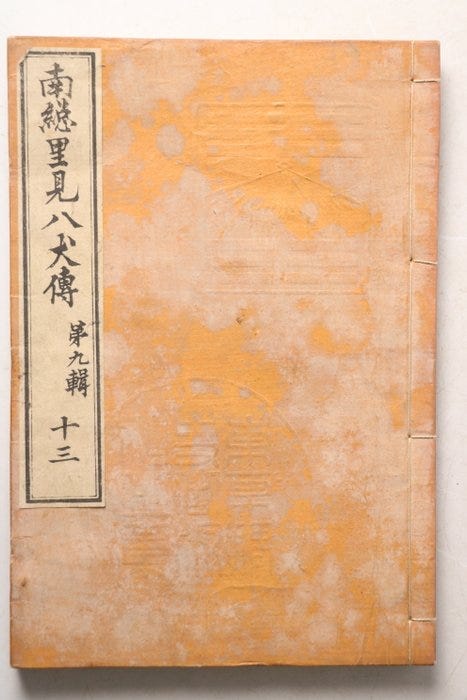 南総里見八犬傳 第九輯 十三